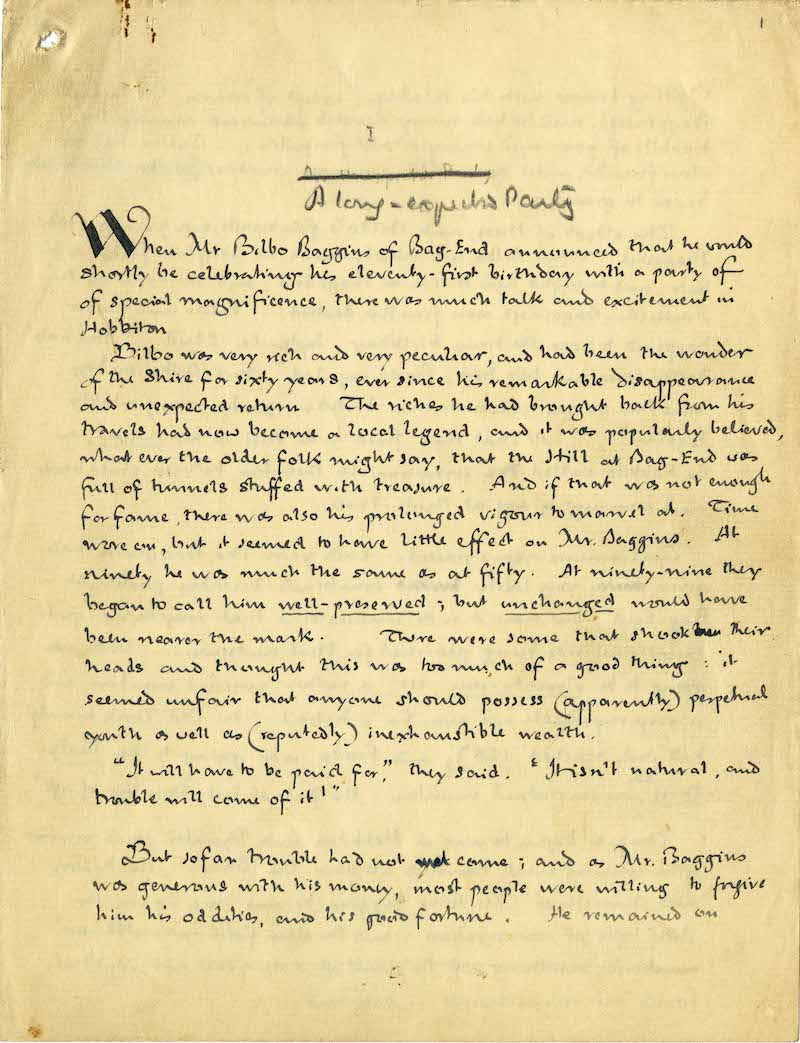 1
I
A long-expected Party
When Mr Bilbo Baggins of Bag-End announced that he would
shortly be celebrating his eleventy-first birthday with a party of
of special magnificence, there was much talk and excitement in
Hobbiton
Bilbo was very rich and very peculiar, and had been the wonder
of the Shire for sixty years, ever since his remarkable disappearance
and unexpected return The riches he had brought back from his
travels had now become a local legend, and it was popularly believed,
what ever the older folk might say, that the Hill at Bag-End was
full of tunnels stuffed with treasure. And if that was not enough
for fame, there was also his prolonged vigour to marvel at. Time
wore on, but it seemed to have little effect on Mr. Baggins. At
ninety he was much the same as at fifty. At ninety-nine they
began to call him well-preserved; but unchanged would have
been nearer the mark. There were some that shook their
heads and thought this was too much of a good thing: it
seemed unfair that anyone should possess (apparently) perpetual
youth as well as (reputedly) inexhaustible wealth.
"It will have to be paid for," they said. "It isn't natural, and
trouble will come of it!"
But so far trouble had not yet come; and as Mr. Baggins
was generous with his money, most people were willing to forgive
him his oddities, and his good fortune. He remained on